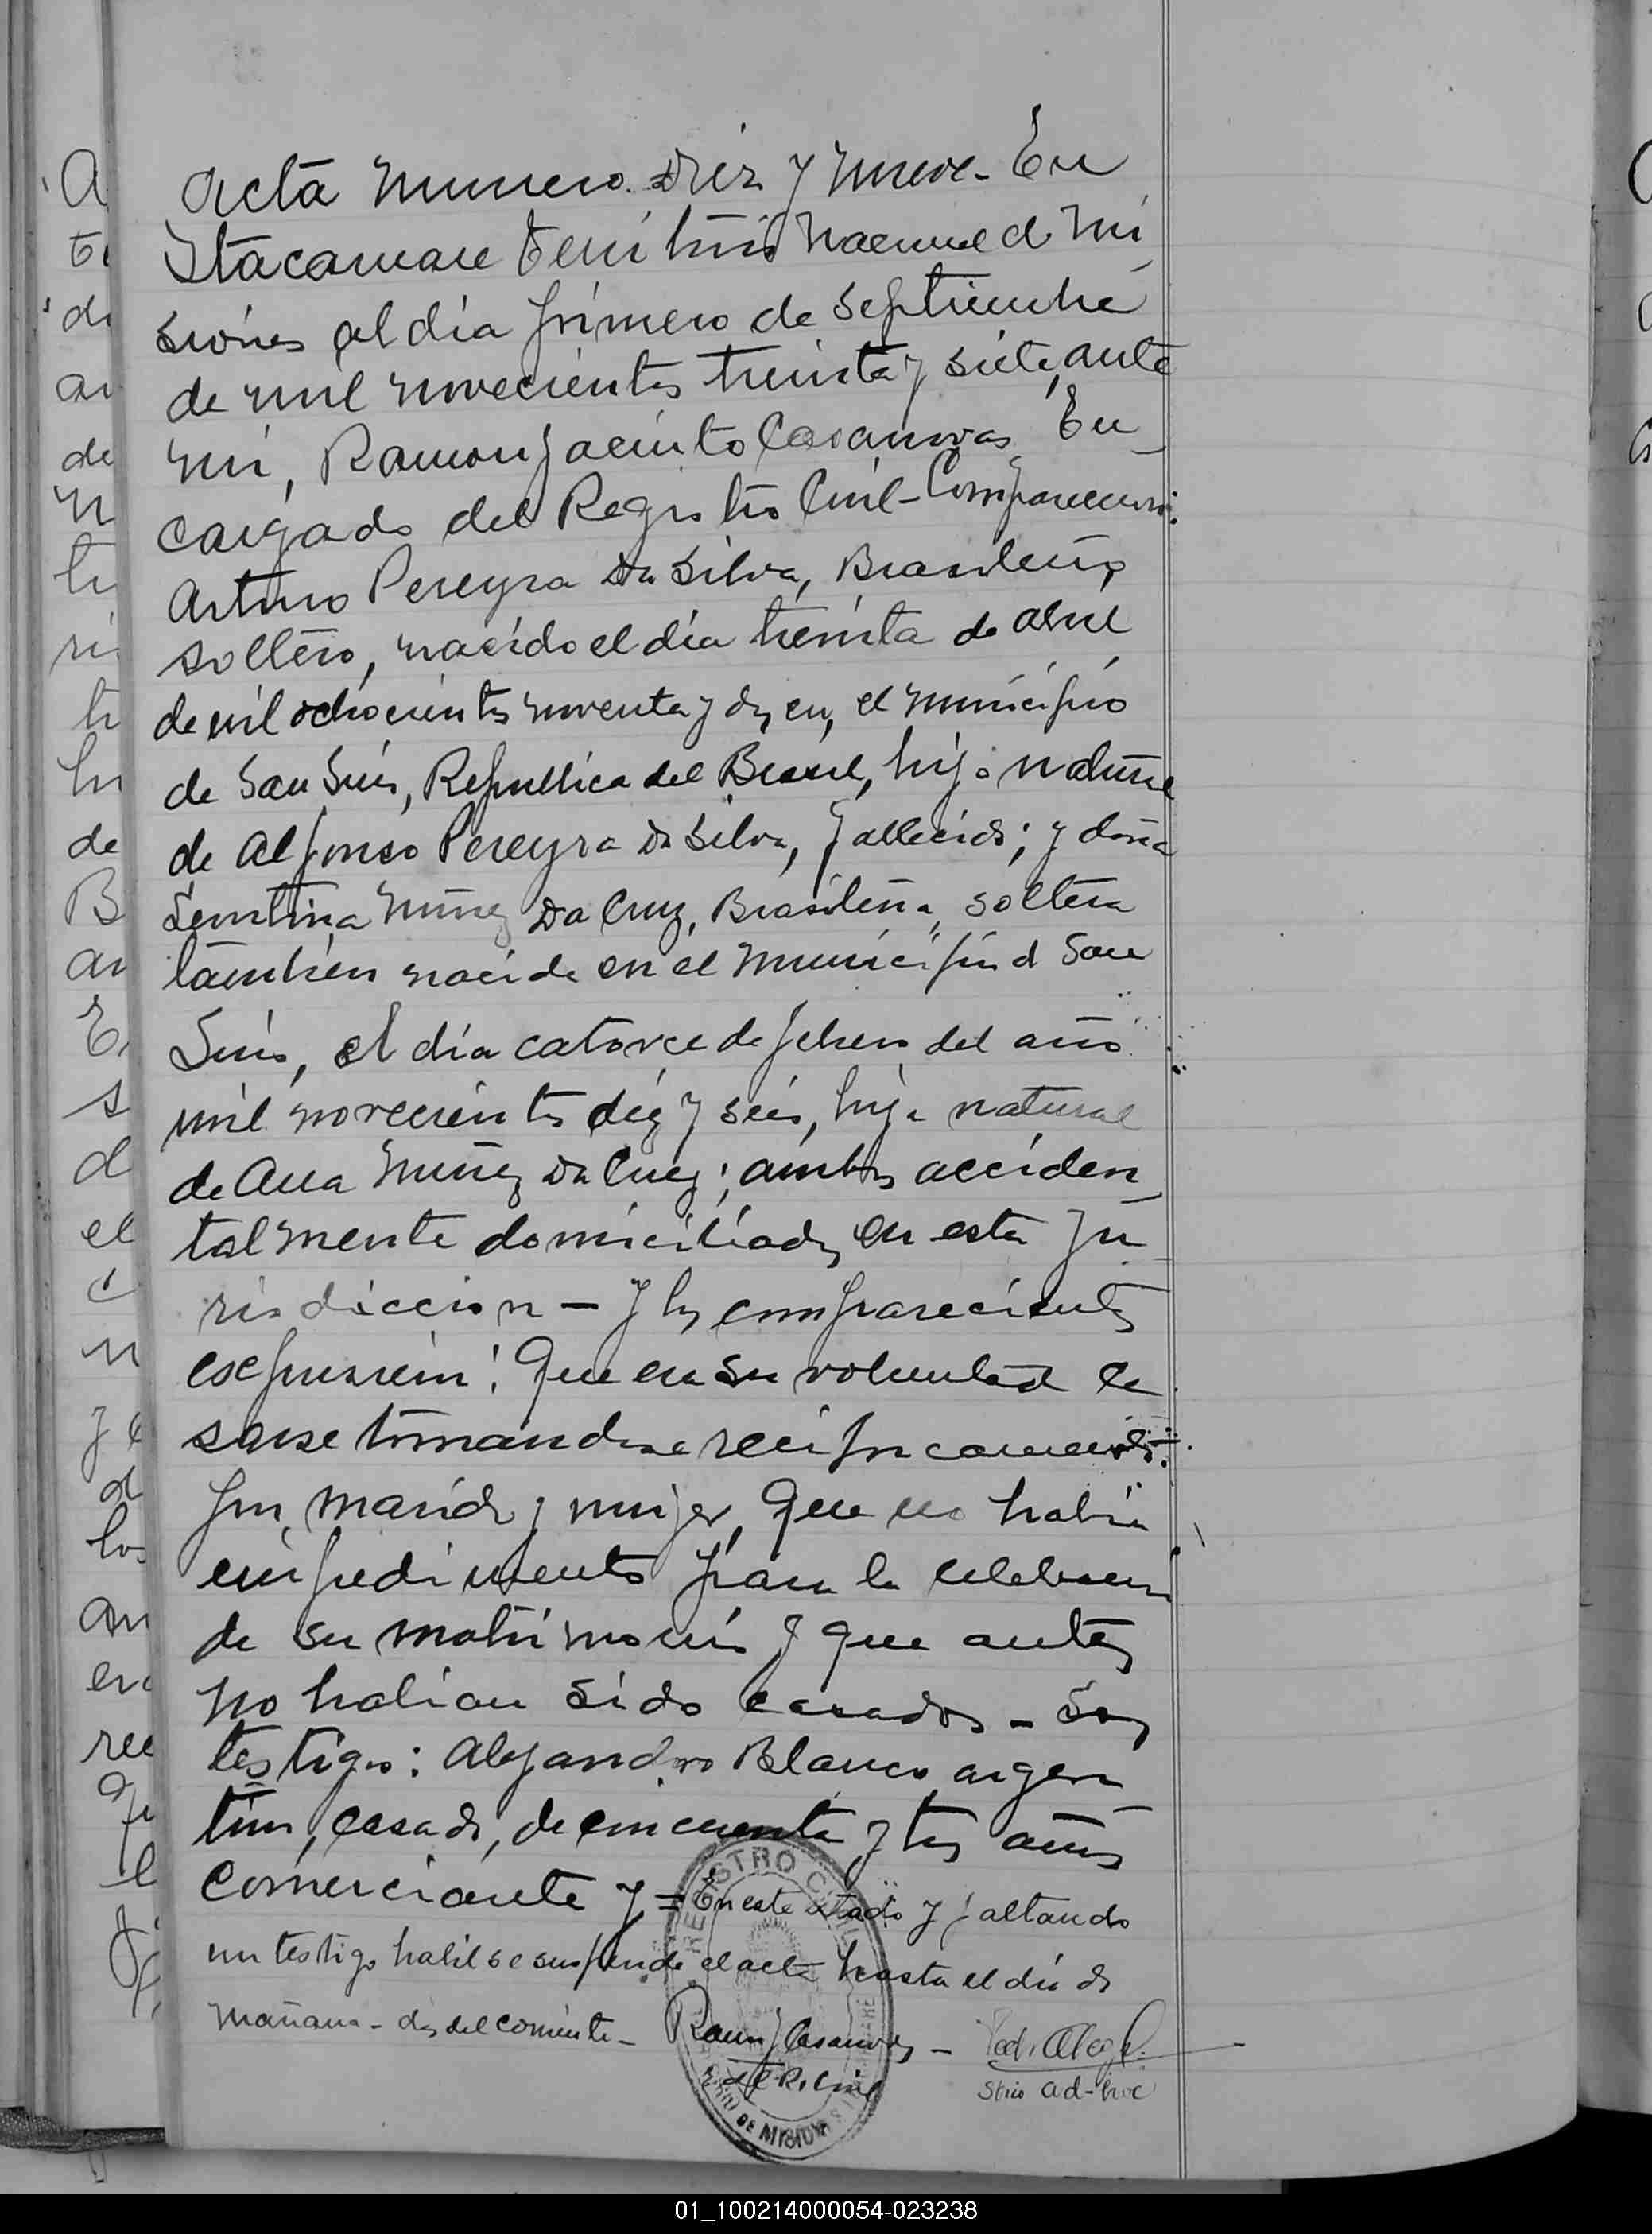 Acta Numero Diez y nueve - En
Itacaruare Territorio Nacional de Mi
siones al día primero de Septiembre
de mil novecientos treinta y siete, ante
mi, Ramon Jacinto Casanovas, En-
cargado del Registro Civil - Comparecieron:
Arturo Pereyra Da Silva, Brasileño,
soltero, nacido el día treinta de abril
de mil ochocientos noventa y dos, en el Municipio
de San Luis, Republica del Brasil, hijo natural
de Alfonso Pereyra Da Silva, fallecido; y doña
Nuñez Da Cruz, Brasileña, soltera
tambien nacida en el Municipio de San
Luis, el día catorce de febrero del año
mil novecientos diez y seis, hija natural
de Ana Nuñez Da Cruz; ambos acciden
talmente domiciliados en esta Ju
risdiccion - y los comparecientes
expusieron: Que era su voluntad ca
sarse tomandose reciprocamente
por marido y mujer, que no habia
impedimento para la celebracion
de su matrimonio y que antes
no habian sido casados - Son
testigos: Alejandro Blanco argen
tino, casado, de cincuenta y tres años
Comerciante y = En este estado y faltando
un testigo habil se suspende el acta hasta el día de
mañana - dos del corriente - Ramon J Casanovas -
del R. Civil Strio ad-hoc
REGISTRO CIVIL
01_100214000054-023238